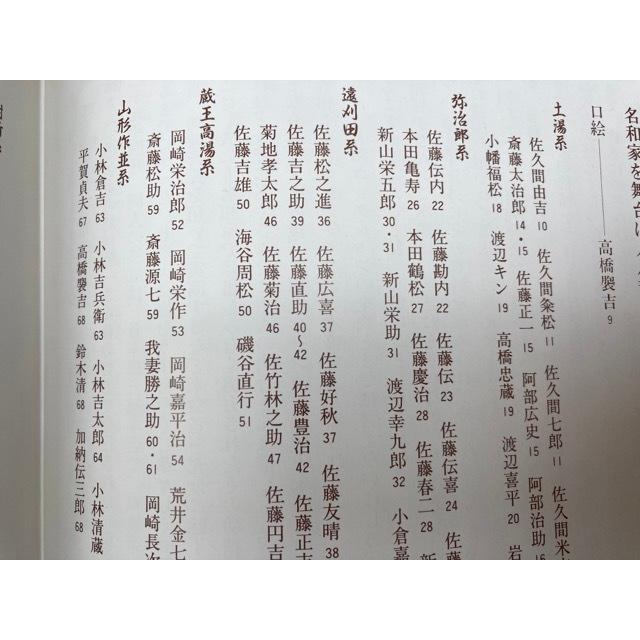 口絵——高橋褜吉 9
土湯系
佐久間由吉 10 佐久間粂松 11 佐久間七郎 11 佐久間米
斎藤太治郎 14・15 佐藤正一 15 阿部広史 15 阿部治助 16
小幡福松 18 渡辺キン 19 高橋忠蔵 19 渡辺喜平 20 岩
弥治郎系
佐藤伝内 22 佐藤勘内 22 佐藤伝 23 佐藤伝喜 24
本田亀寿 26 本田鶴松 27 佐藤慶治 28 佐藤春二 28 新
新山栄五郎 30・31 新山栄助 31 渡辺幸九郎 32 小倉嘉
遠刈田系
佐藤松之進 36 佐藤広喜 37 佐藤好秋 37 佐藤友晴 38
佐藤吉之助 39 佐藤直助 40〜42 佐藤豊治 42 佐藤正吉
菊地孝太郎 46 佐藤菊治 46 佐竹林之助 47 佐藤円吉
佐藤吉雄 50 海谷周松 50 磯谷直行 51
蔵王高湯系
岡崎栄治郎 52 岡崎栄作 53 岡崎嘉平治 54 荒井金七
斎藤松助 59 斎藤源七 59 我妻勝之助 60・61 岡崎長次
山形作並系
小林倉吉 63 小林吉兵衛 63 小林吉太郎 64 小林清蔵
平賀貞夫 67 高橋褜吉 68 鈴木清 68 加納伝三郎 68